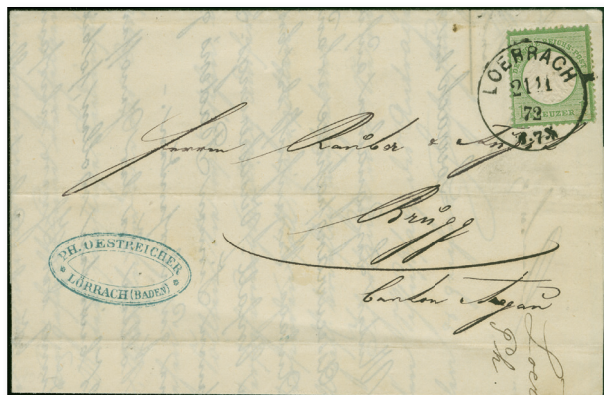 LOERRACH
21 11
72
KREUZER
Herrn Rauber &
Brugg
Canton Argau
PH. OESTREICHER
LÖRRACH (BADEN)
Loer
Ph.